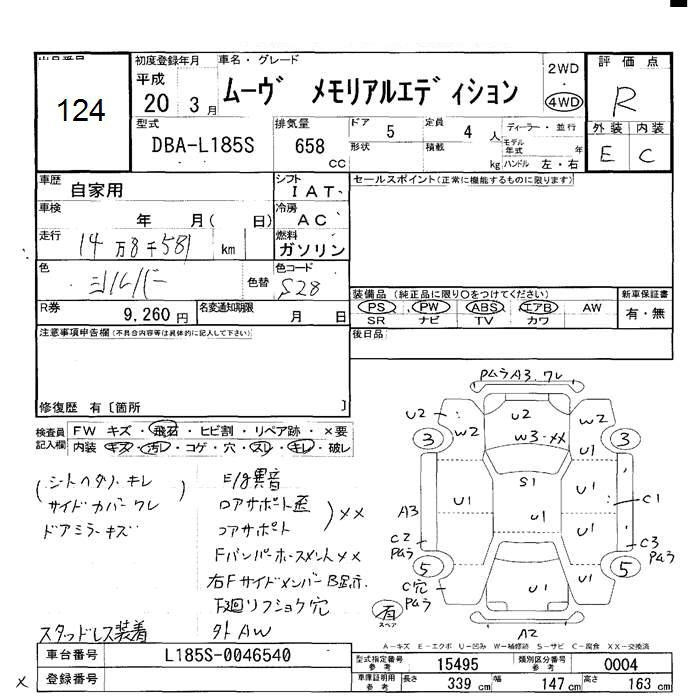 出品番号
124
初度登録年月
平成
20 3月
車名・グレード
ムーヴ メモリアルエディション
2WD
・
4WD
評価点
R
型式
DBA-L185S
排気量
658 CC
ドア 5
定員 4 人
形状
積載 kg
ディーラー・並行
モデル年式 年
ハンドル 左・右
外装 内装
E C
車歴 自家用
シフト IAT
セールスポイント(正常に機能するものに限ります)
車検 年 月( 日)
冷房 AC
走行 14万8千581 km
燃料 ガソリン
色 シルバー 色替
色コード S28
R券 9,260円
名変通知期限 月 日
装備品 (純正品に限り○をつけてください)
PS ・ PW ・ ABS ・ エアB ・ AW
SR ナビ TV カワ
新車保証書
有・無
注意事項申告欄(不具合内容等は具体的に記入して下さい)
後日品
修復歴 有〔箇所 〕
検査員記入欄
FW キズ・飛石・ヒビ割・リペア跡・×要
内装 キズ・汚レ・コゲ・穴・スレ・キレ・破レ
(シートヘタリ・キレ
サイドカバーワレ)
ドアミラーキズ
スタッドレス装着
E/g異音
ロアサポート歪
コアサポート
)××
Fバンパーホースメント××
右Fサイドメンバー
穴
外AW
PムラA3.ワレ
U2
W2
U2
W3・××
W2
3
3
U1
S1
U1
U1
C1
A3
C2
Pムラ
U1
U1
C3
Pムラ
5
C穴
Pムラ
U1
U1
5
有
スペア
A2
A-キズ E-エクボ U-凹み W-補修跡 S-サビ C-腐食 XX-交換済
車台番号 L185S-0046540
登録番号
×
型式指定番号 参考 15495
類別区分番号 参考 0004
車庫証明用 参考 長さ 339 cm 幅 147 cm 高さ 163 cm